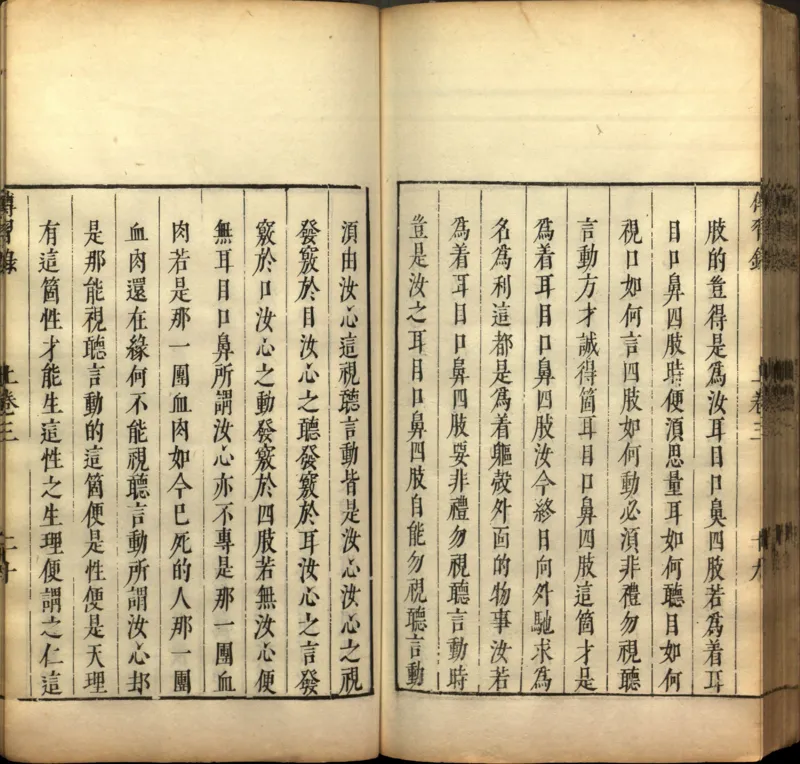 傳習錄
上卷三
十九
肢的豈得是爲汝耳目口臭四肢若爲着耳
目口鼻四肢時便湏思量耳如何聽目如何
視口如何言四肢如何動必湏非禮勿視聽
言動方才誠得箇耳目口鼻四肢這箇才是
爲着耳目口鼻四肢汝今終日向外馳求爲
名爲利這都是爲着軀殼外面的物事汝若
爲着耳目口鼻四肢要非禮勿視聽言動時
豈是汝之耳目口鼻四肢自能勿視聽言動
湏由汝心這視聽言動皆是汝心汝心之視
發竅於目汝心之聽發竅於耳汝心之言發
竅於口汝心之動發竅於四肢若無汝心便
無耳目口鼻所謂汝心亦不專是那一團血
肉若是那一團血肉如今已死的人那一團
血肉還在緣何不能視聽言動所謂汝心却
是那能視聽言動的這箇便是性便是天理
有這箇性才能生這性之生理便謂之仁這
傳習錄
上卷三
二十